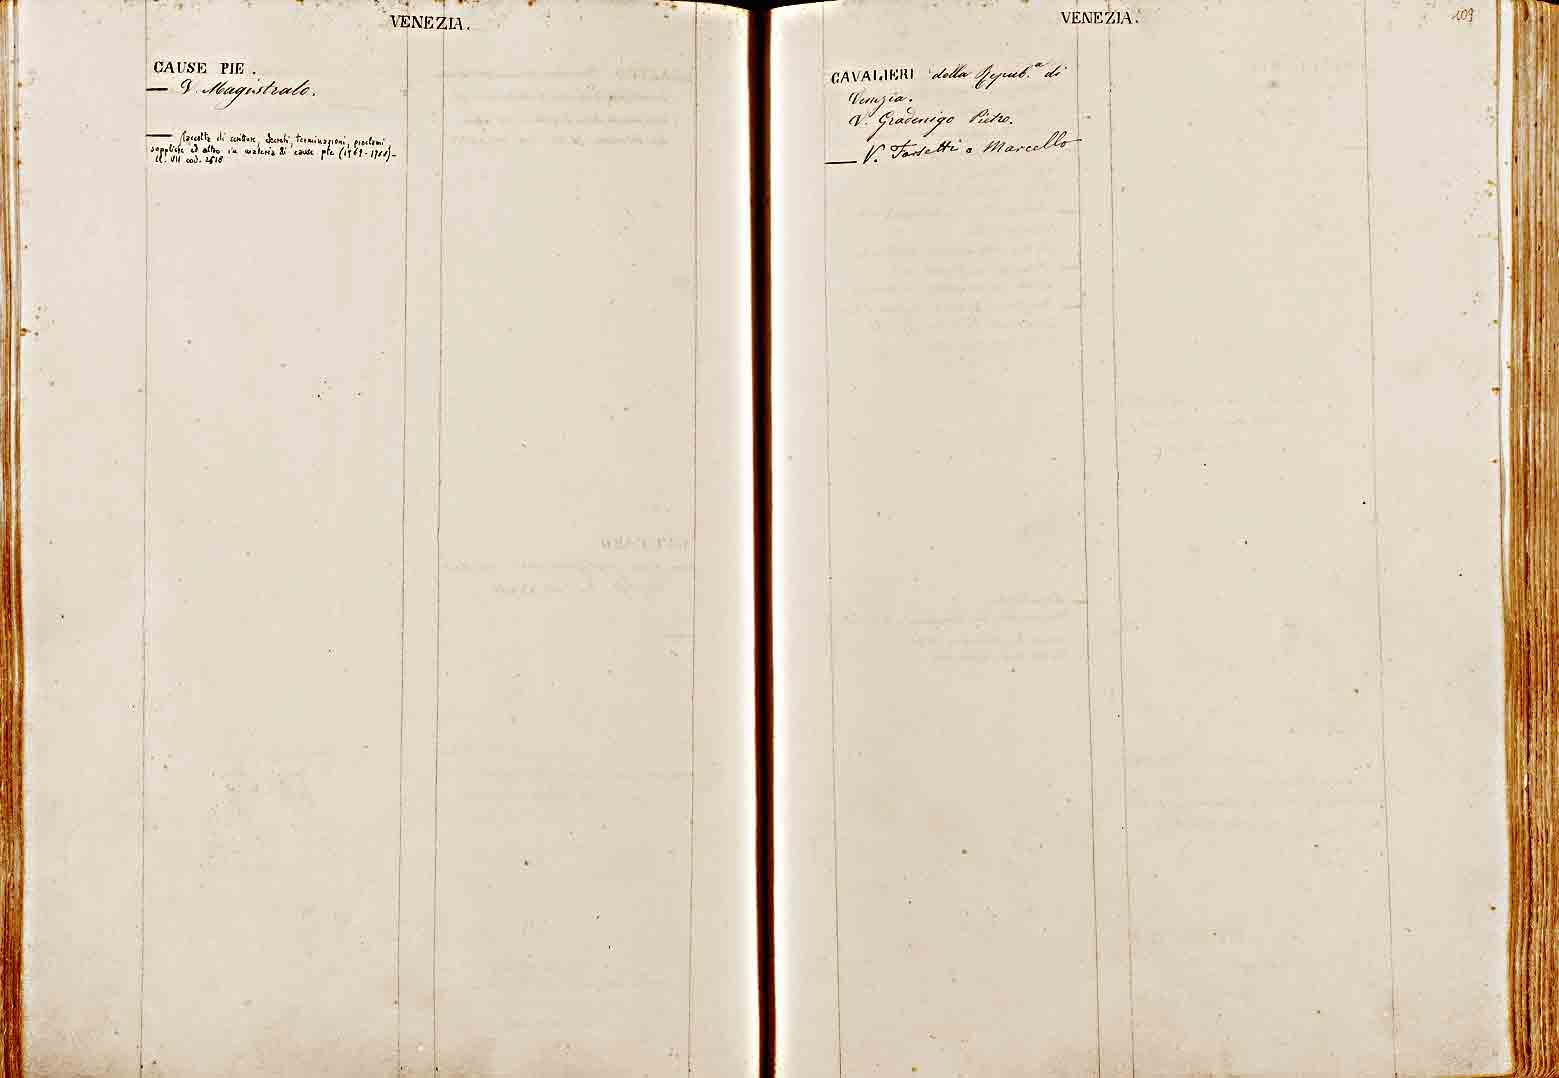 VENEZIA.
CAUSE PIE.
— V. Magistrato.
— Raccolta di scritture, Decreti, terminazioni, proclami
suppliche ed altro in materia di cause pie (1769-1788)-
cl. VII cod. 2618
VENEZIA.
109
CAVALIERI della Repub.ª di
Venezia.
V. Gradenigo Pietro.
— V. Farsetti a Marcello